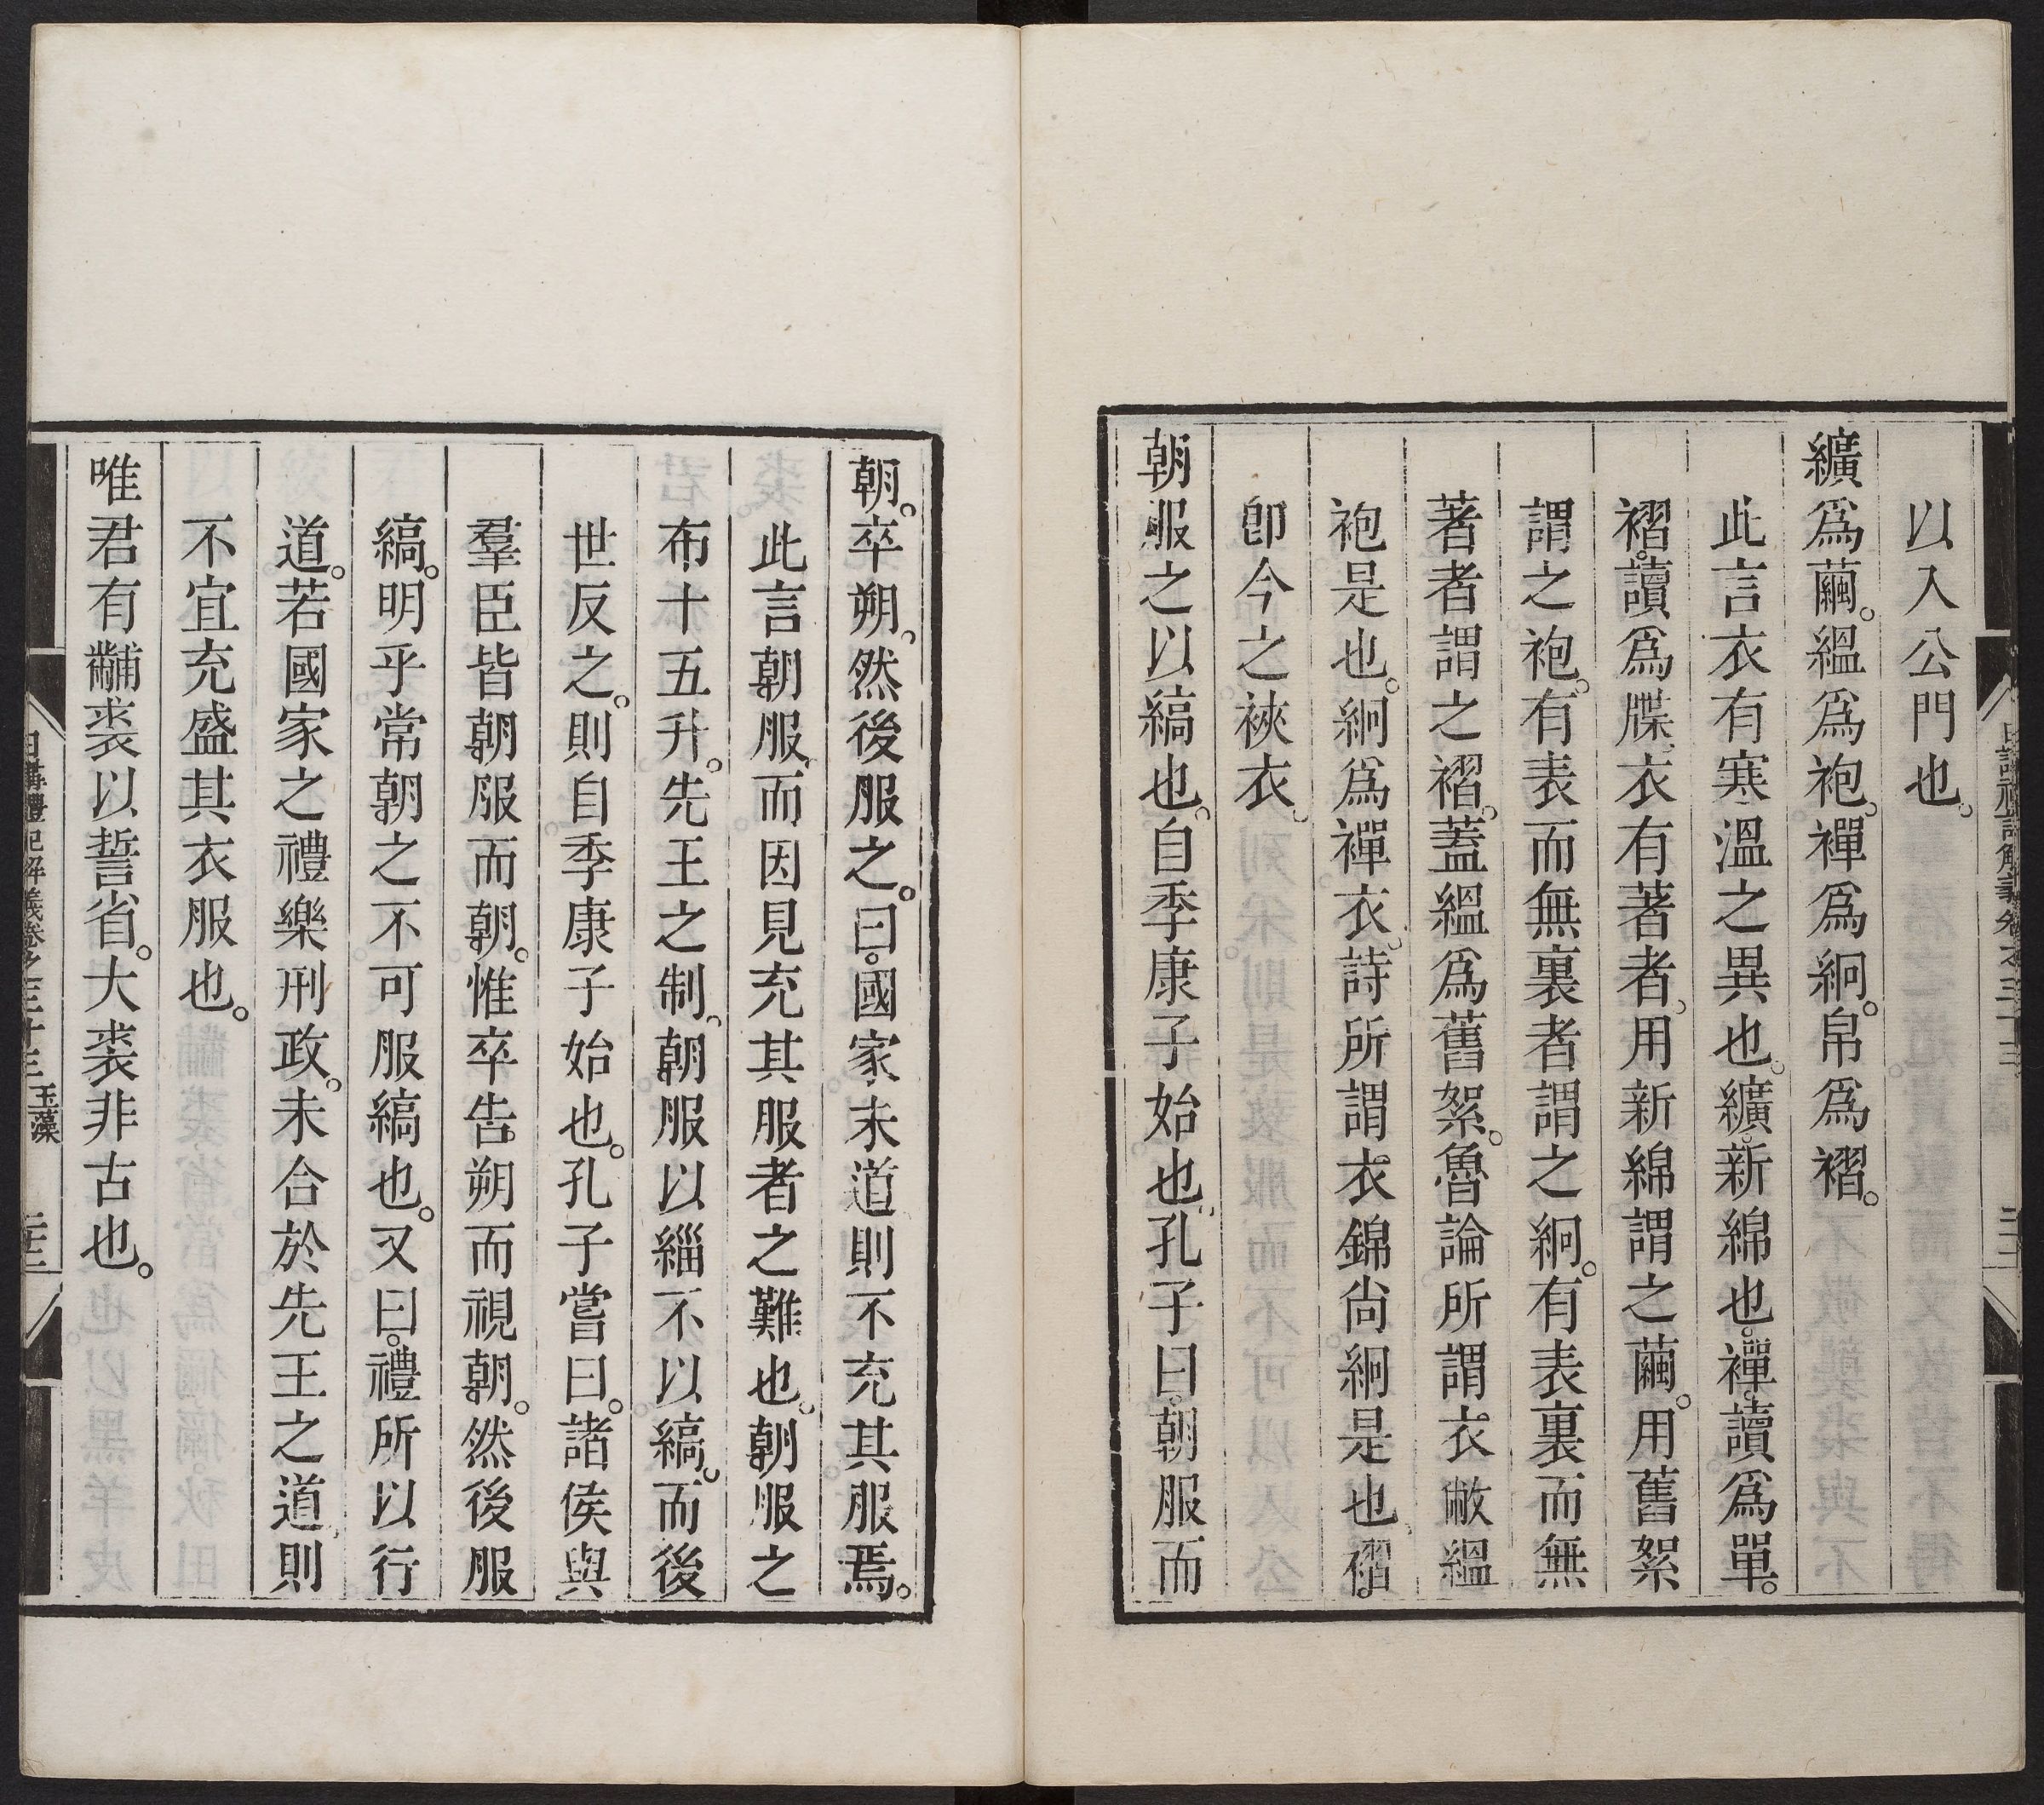 以入公門也。
纊爲繭。縕爲袍。襌爲絅。帛爲褶。
此言衣有寒溫之異也。纊。新綿也。襌。讀爲單。
褶。讀爲牒。衣有著者。用新綿謂之繭。用舊絮
謂之袍。有表而無裏者謂之絅。有表裏而無
著者謂之褶。蓋縕爲舊絮。魯論所謂衣敝縕
袍是也。絅爲襌衣。詩所謂衣錦尙絅是也。褶。
卽今之裌衣。
朝服之以縞也。自季康子始也。孔子曰。朝服而
朝。卒朔。然後服之。曰。國家未道則不充其服焉。
此言朝服。而因見充其服者之難也。朝服之
布十五升。先王之制。朝服以緇不以縞。而後
世反之。則自季康子始也。孔子嘗曰。諸侯與
羣臣皆朝服而朝。惟卒告朔而視朝。然後服
縞。明乎常朝之不可服縞也。又曰。禮所以行
道。若國家之禮樂刑政。未合於先王之道。則
不宜充盛其衣服也。
唯君有黼裘以誓省。大裘非古也。
日講禮記解義卷之三十三 玉藻 二十二